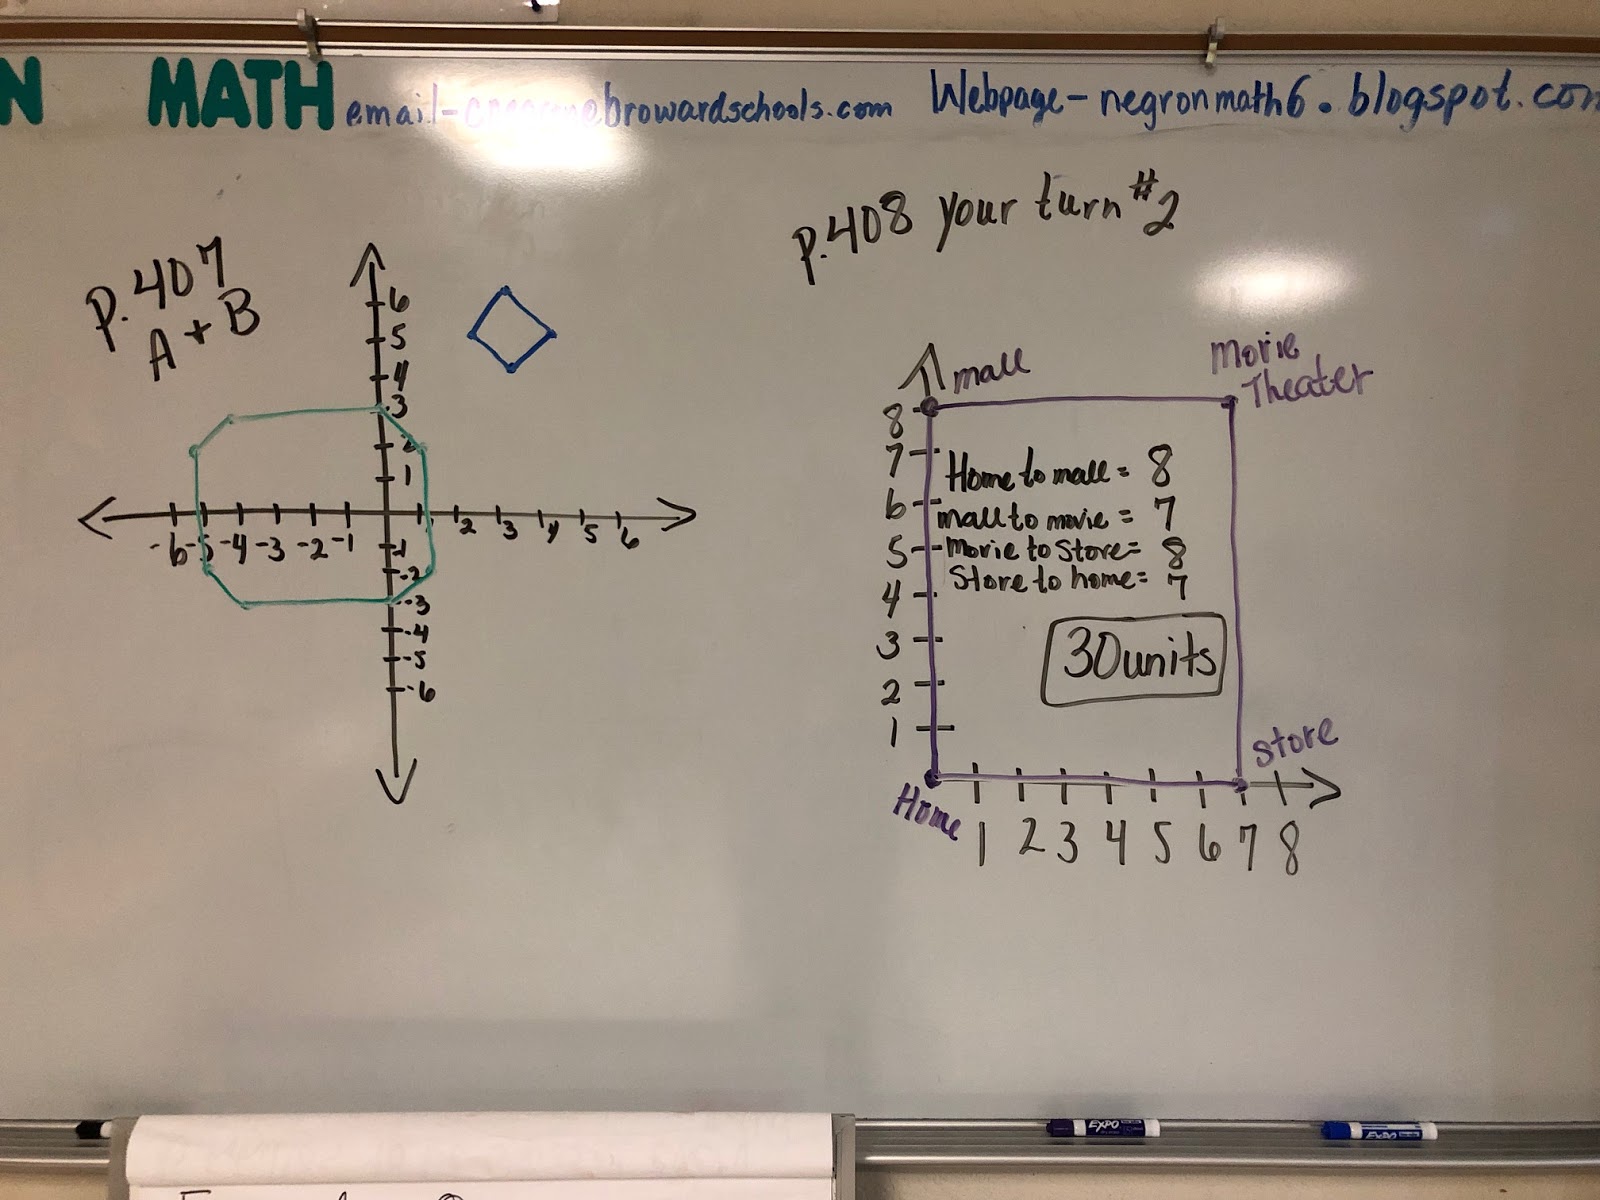 N MATH
email- browardschools.com
Webpage- negronmath6.blogspot.com
p.407
A + B
6
5
4
3
2
1
-6 -5 -4 -3 -2 -1 2 3 4 5 6
-1
-2
-3
-4
-5
-6
p.408 your turn #2
mall
Movie
Theater
8
7
6
5
4
3
2
1
Home to mall = 8
mall to movie = 7
Movie to Store = 8
Store to home = 7
30 units
Store
Home
1 2 3 4 5 6 7 8
EXPO
EXPO